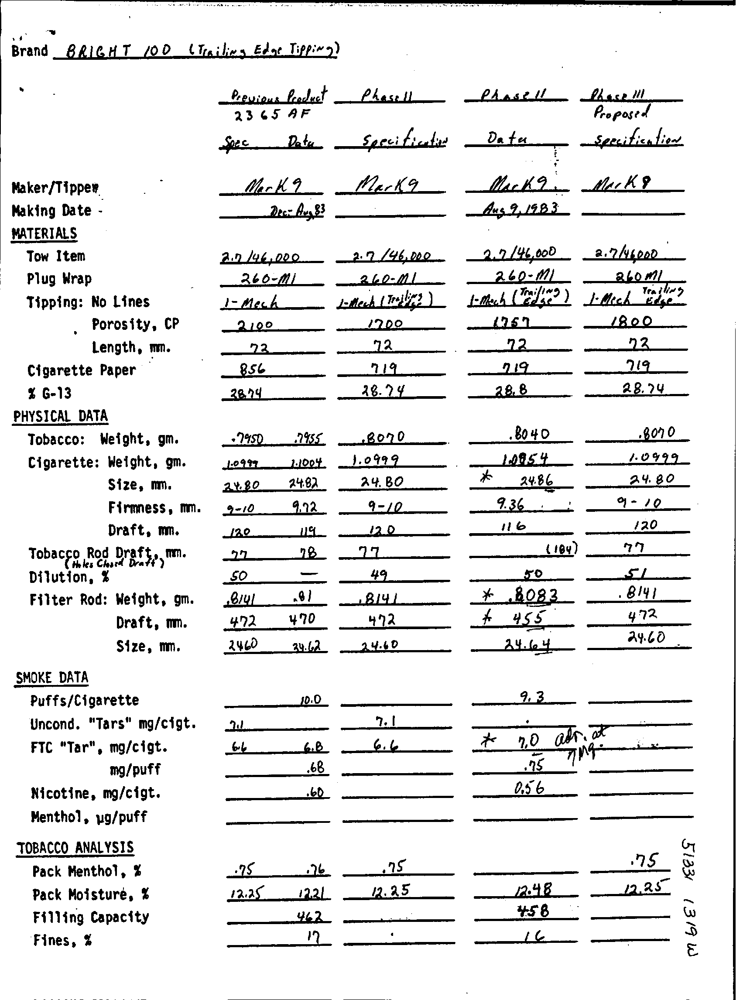 Brand BRIGHT 100 (Trailing Edge Tipping)
Previous Product Phase II Phase II Phase III
2365 AF Proposed
Spec Data Specification Data Specification
Maker/Tipper Mark 9 Mark 9 Mark 9. Mark 8
Making Date - Dec- Aug 83 Aug 9, 1983
MATERIALS
Tow Item 2.7/46,000 2.7/46,000 2.7/46,000 2.7/46000
Plug Wrap 260-M1 260-M1 260-M1 260 M1
Tipping: No Lines 1-Mech 1-Mech (Trailing Edge) 1-Mech (Trailing Edge) 1-Mech Trailing Edge
Porosity, CP 2100 1700 1757 1800
Length, mm. 72 72 72 72
Cigarette Paper 856 719 719 719
% G-13 28.74 28.74 28.8 28.74
PHYSICAL DATA
Tobacco: Weight, gm. .7950 .7955 .8070 .8040 .8070
Cigarette: Weight, gm. 1.0999 1.1004 1.0999 1.0954 1.0999
Size, mm. 24.80 24.82 24.80 * 24.86 24.80
Firmness, mm. 9-10 9.72 9-10 9.36 9-10
Draft, mm. 120 119 120 116 120
Tobacco Rod Draft, mm. 77 78 77 (184) 77
(Holes Closed Draft)
Dilution, % 50 — 49 50 51
Filter Rod: Weight, gm. .8141 .81 .8141 * .8083 .8141
Draft, mm. 472 470 472 * 455 472
Size, mm. 2460 24.62 24.60 24.64 24.60
SMOKE DATA
Puffs/Cigarette 10.0 9.3
Uncond. "Tars" mg/cigt. 7.1 7.1
FTC "Tar", mg/cigt. 6.6 6.8 6.6 * 7.0 adv. at 7 Mg.
mg/puff .68 .75
Nicotine, mg/cigt. .60 0.56
Menthol, µg/puff
TOBACCO ANALYSIS
Pack Menthol, % .75 .76 .75 .75
Pack Moisture, % 12.25 12.21 12.25 12.48 12.25
Filling Capacity 462 458
Fines, % 17 16
51331 1319 W